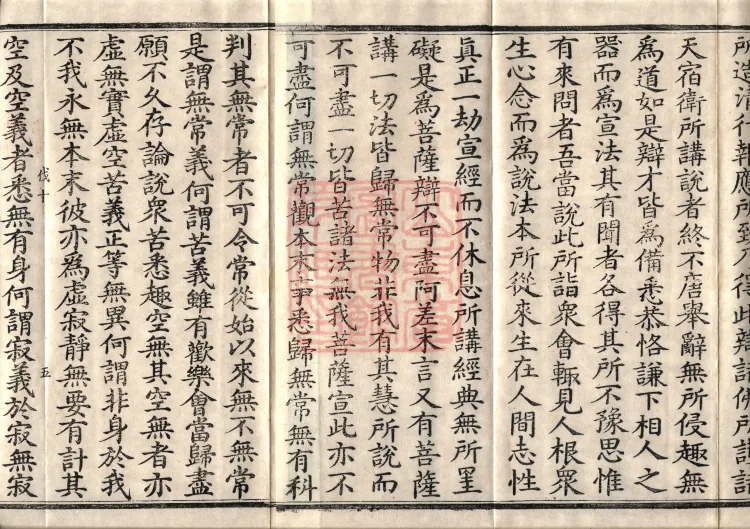 天宿衛所講說者終不唐舉辭無所侵趣無
為道如是辯才皆為備悉恭恪謙下相人之
器而為宣法其有聞者各得其所不豫思惟
有來問者吾當說此所詣眾會輒見人根眾
生心念而為說法本所從來生在人間志性
真正一劫宣經而不休息所講經典無所罣
礙是為菩薩辯不可盡阿差末言又有菩薩
講一切法皆歸無常物非我有其慧所說而
不可盡一切皆苦諸法無我菩薩宣此亦不
可盡何謂無常觀本末事悉歸無常無有科
判其無常者不可令常從始以來無不無常
是謂無常義何謂苦義雖有歡樂會當歸盡
願不久存論說眾苦悉趣空無其空無者亦
虛無實虛空苦義正等無異何謂非身於我
不我永無本末彼亦為虛寂靜無要有計其
伐十 五
空及空義者悉無有身何謂寂義於寂無寂